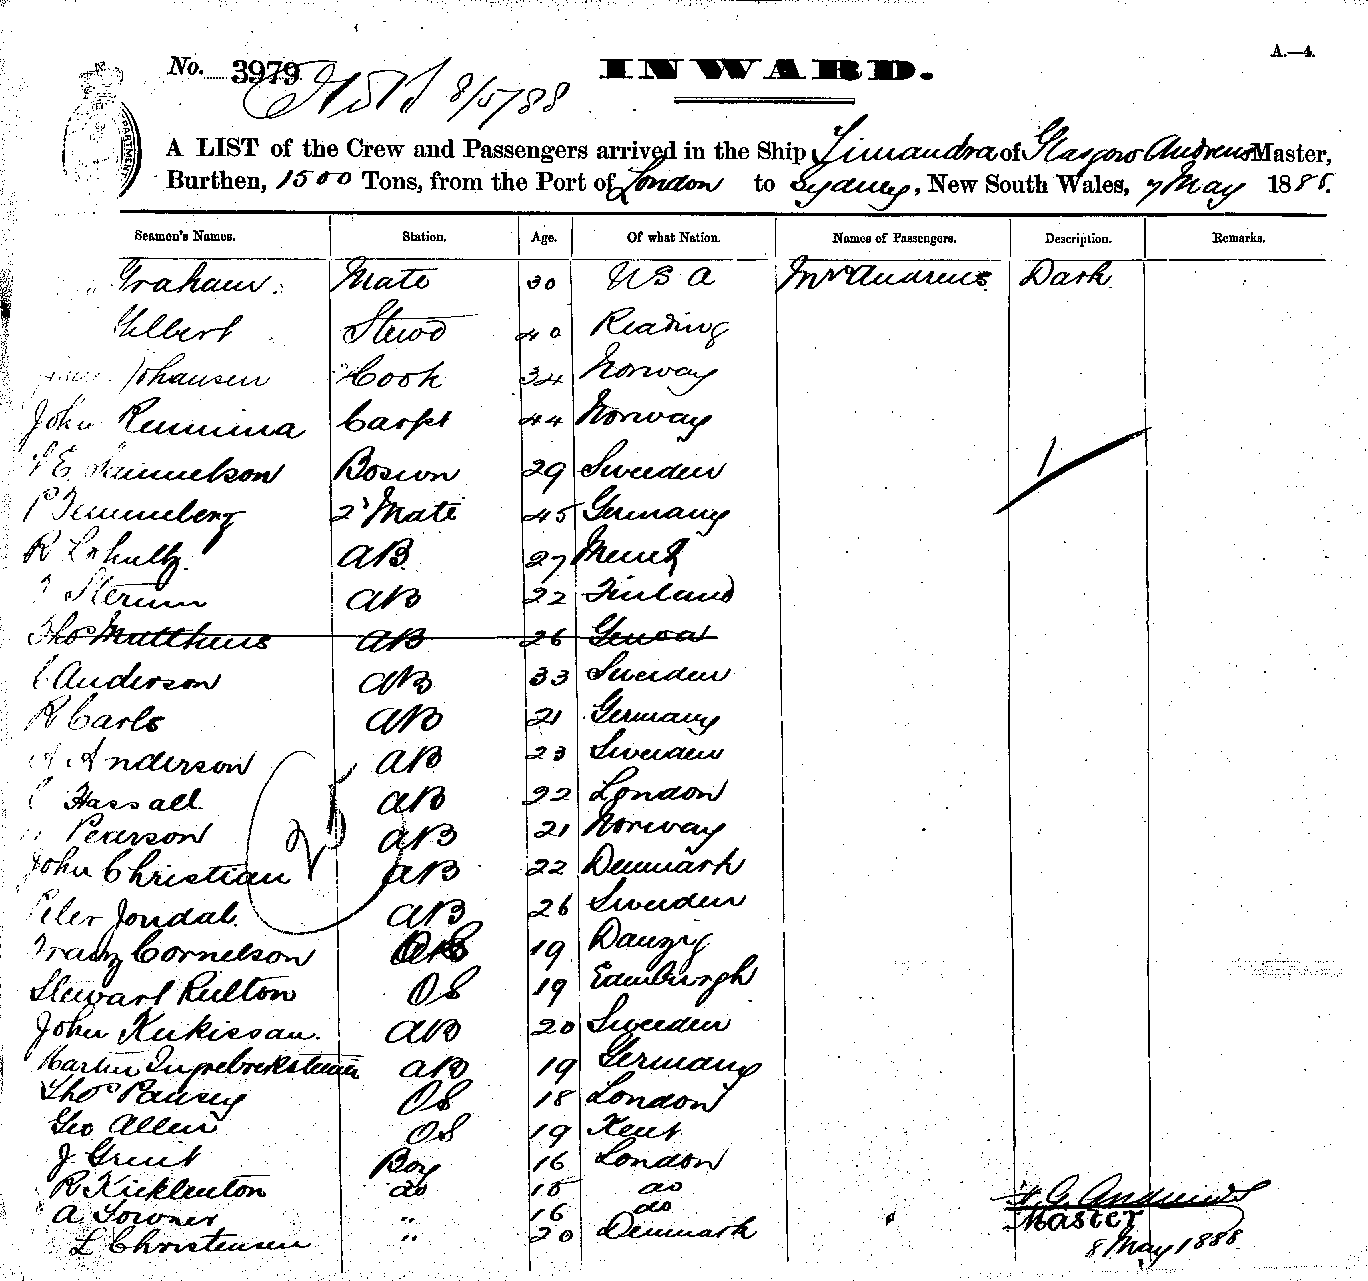 A.—4.
No. 3979 INWARD.
8/5/88
DEPARTMENT
A LIST of the Crew and Passengers arrived in the Ship Timandra of Glasgow Andrews Master,
Burthen, 1500 Tons, from the Port of London to Sydney, New South Wales, 7 May 1888.
Seamen's Names. Station. Age. Of what Nation. Names of Passengers. Description. Remarks.
Graham. Mate 30 USA Mrs Andrews Dark
Gilbert Stewd 40 Reading
Johansen Cook 34 Norway
John Carpt 44 Norway
Samuelson Bosun 29 Sweden 1
P 2d Mate 45 Germany
R AB 27
AB 22 Finland
Thos Matthews AB 26 Genoa
C Anderson AB 33 Sweden
R Carls AB 21 Germany
A Anderson AB 23 Sweden
C Hassall AB 22 London
Pearson AB 21 Norway
25
John Christian AB 22 Denmark
Peter Jondal. AB 26 Sweden
Franz Cornelson OS 19 Danzig
Stewart Rulton OS 19 Edinburgh
John AB 20 Sweden
Martin AB 19 Germany
Thos Pausey OS 18 London
Geo Allen OS 19 Kent
J Grint Boy 16 London
R do 15 do
A 〃 16 do
L Christensen 〃 20 Denmark
Andrews
Master
8 May 1888.